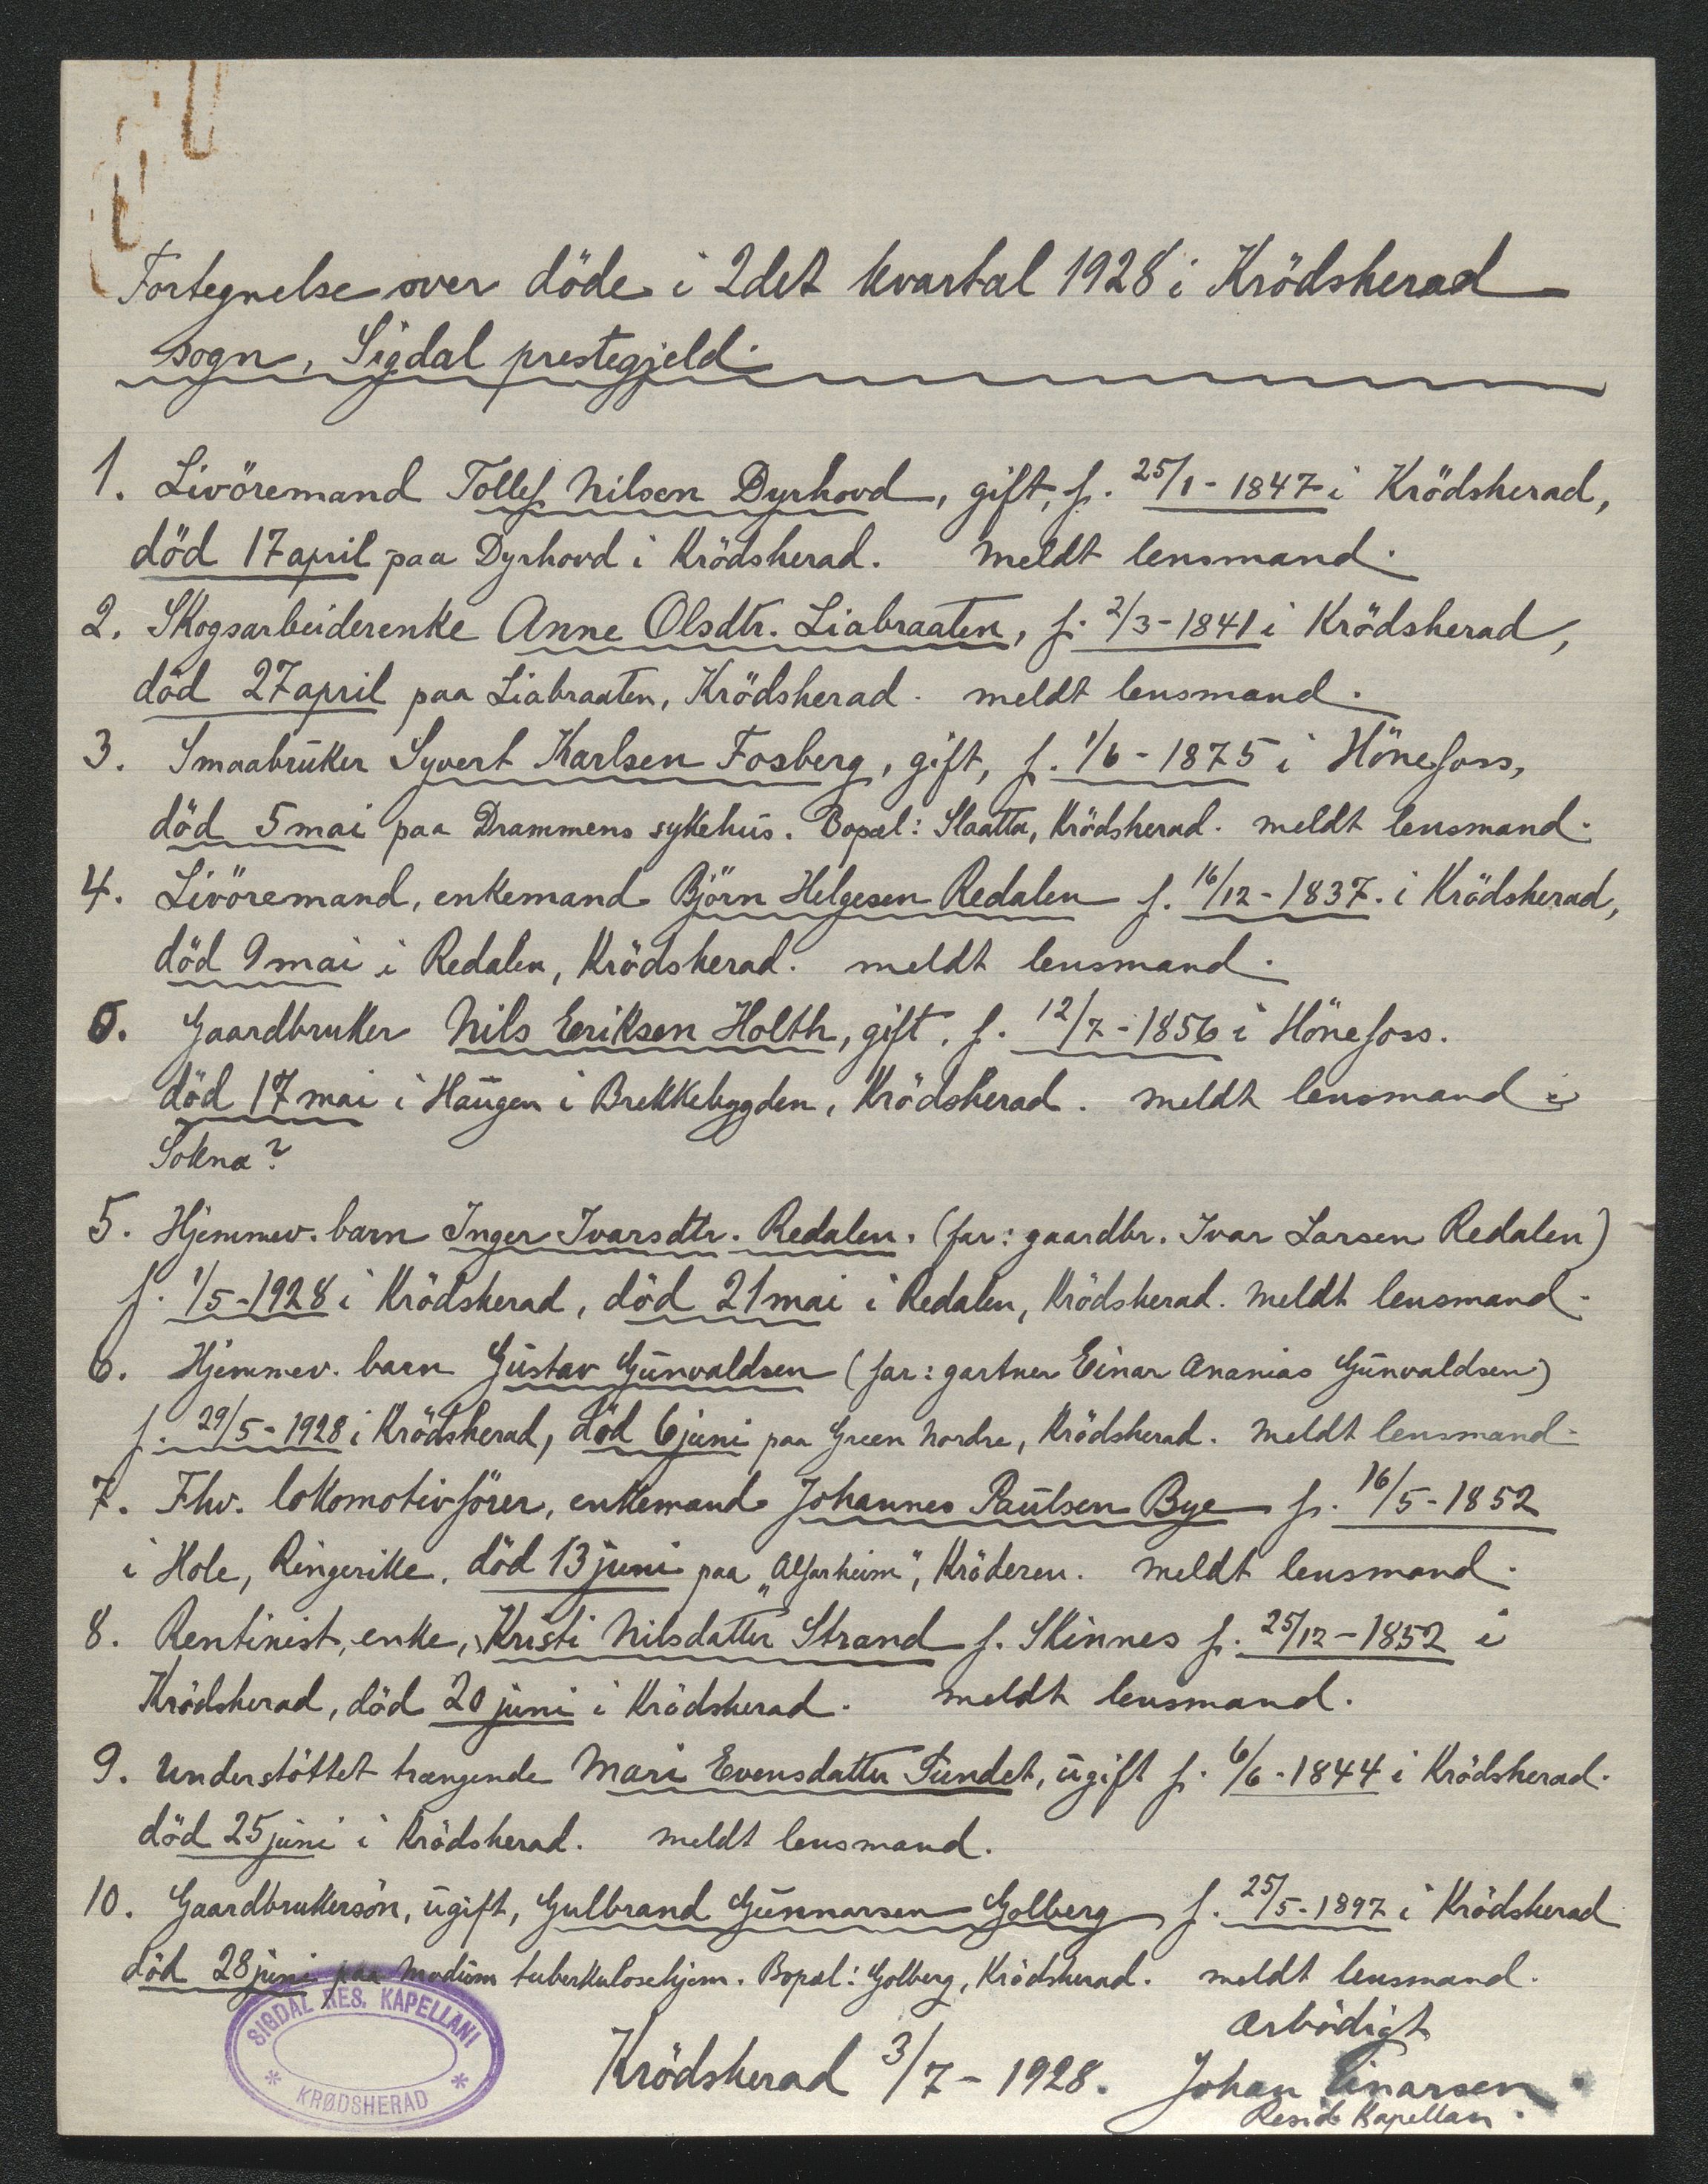 Fortegnelse over döde i 2det kvartal 1928 i Krödsherad
sogn, Sigdal prestegjeld.
1. Livöremand Tollef Nilsen Dyrhovd, gift, f. 25/1 - 1847 i Krödsherad,
död 17 april paa Dyrhovd i Krödsherad. meldt lensmand.
2. Skogsarbeiderenke Anne Olsdtr. Liabraaten, f. 2/3 - 1841 i Krödsherad,
död 27 april paa Liabraaten, Krödsherad. meldt lensmand.
3. Smaabruker Syvert Karlsen Fosberg, gift, f. 1/6 - 1875 i Hönefoss,
död 5 mai paa Drammens sykehus. Bopæl: Slaatta, Krödsherad. meldt lensmand.
4. Livöremand, enkemand Björn Helgesen Redalen f. 16/12 - 1837. i Krödsherad,
död 9 mai i Redalen, Krödsherad. meldt lensmand.
0. Gaardbruker Nils Eriksen Holth, gift. f. 12/7 - 1856 i Hönefoss.
död 17 mai i Haugen i Brekkebygden, Krödsherad. meldt lensmand i
Sokna?
5. Hjemmev. barn Inger Ivarsdtr. Redalen. (far: gaardbr. Ivar Larsen Redalen)
f. 1/5 - 1928 i Krödsherad, död 21 mai i Redalen, Krödsherad. meldt lensmand.
6. Hjemmev. barn Gustav Gunvaldsen (far: gartner Einar Ananias Gunvaldsen)
f. 29/5 - 1928 i Krödsherad, död 6 juni paa Green Nordre, Krödsherad. meldt lensmand.
7. Fhv. lokomotivförer, enkemand Johannes Paulsen Bye f. 16/5 - 1852
i Hole, Ringerike. död 13 juni paa „Alfarheim", Kröderen. meldt lensmand.
8. Rentinist, enke, Kristi Nilsdatter Strand f. Skinnes f. 25/12 - 1852 i
Krödsherad, död 20 juni i Krödsherad. meldt lensmand.
9. Understöttet trængende Mari Evensdatter Fundet, ugift f. 6/6 - 1844 i Krödsherad.
död 25 juni i Krödsherad. meldt lensmand.
10. Gaardbrukersön, ugift, Gulbrand Gunnarsen Golberg f. 25/5 - 1897 i Krödsherad
död 28 juni paa Modum tuberkulosehjem. Bopæl: Golberg, Krödsherad. meldt lensmand.
Arbödigt
Krödsherad 3/7 - 1928. Johan Einarsen
Resid. Kapellan.
SIGDAL RES. KAPELLANI
* KRØDSHERAD *